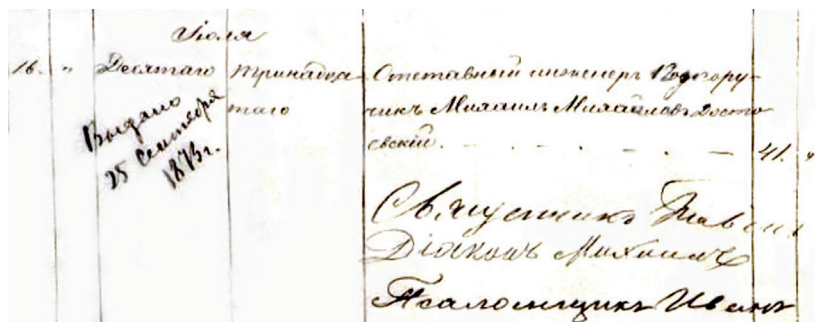 Июля
16. " Десятаго тринадца- Отставный инженеръ Подпору-
таго чикъ Михаилъ Михайловъ Досто
евский. - - - - - - 41. "
Выдано
25 Сентября
1873 г.
Священникъ Павелъ
Діаконъ Михаилъ
Псаломщикъ Иванъ